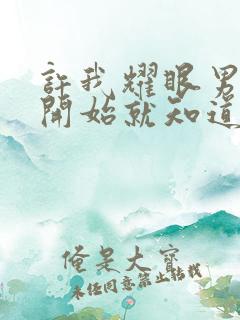 許我耀眼男
開始就知道
俺是大寶
未任同意禁止轉載